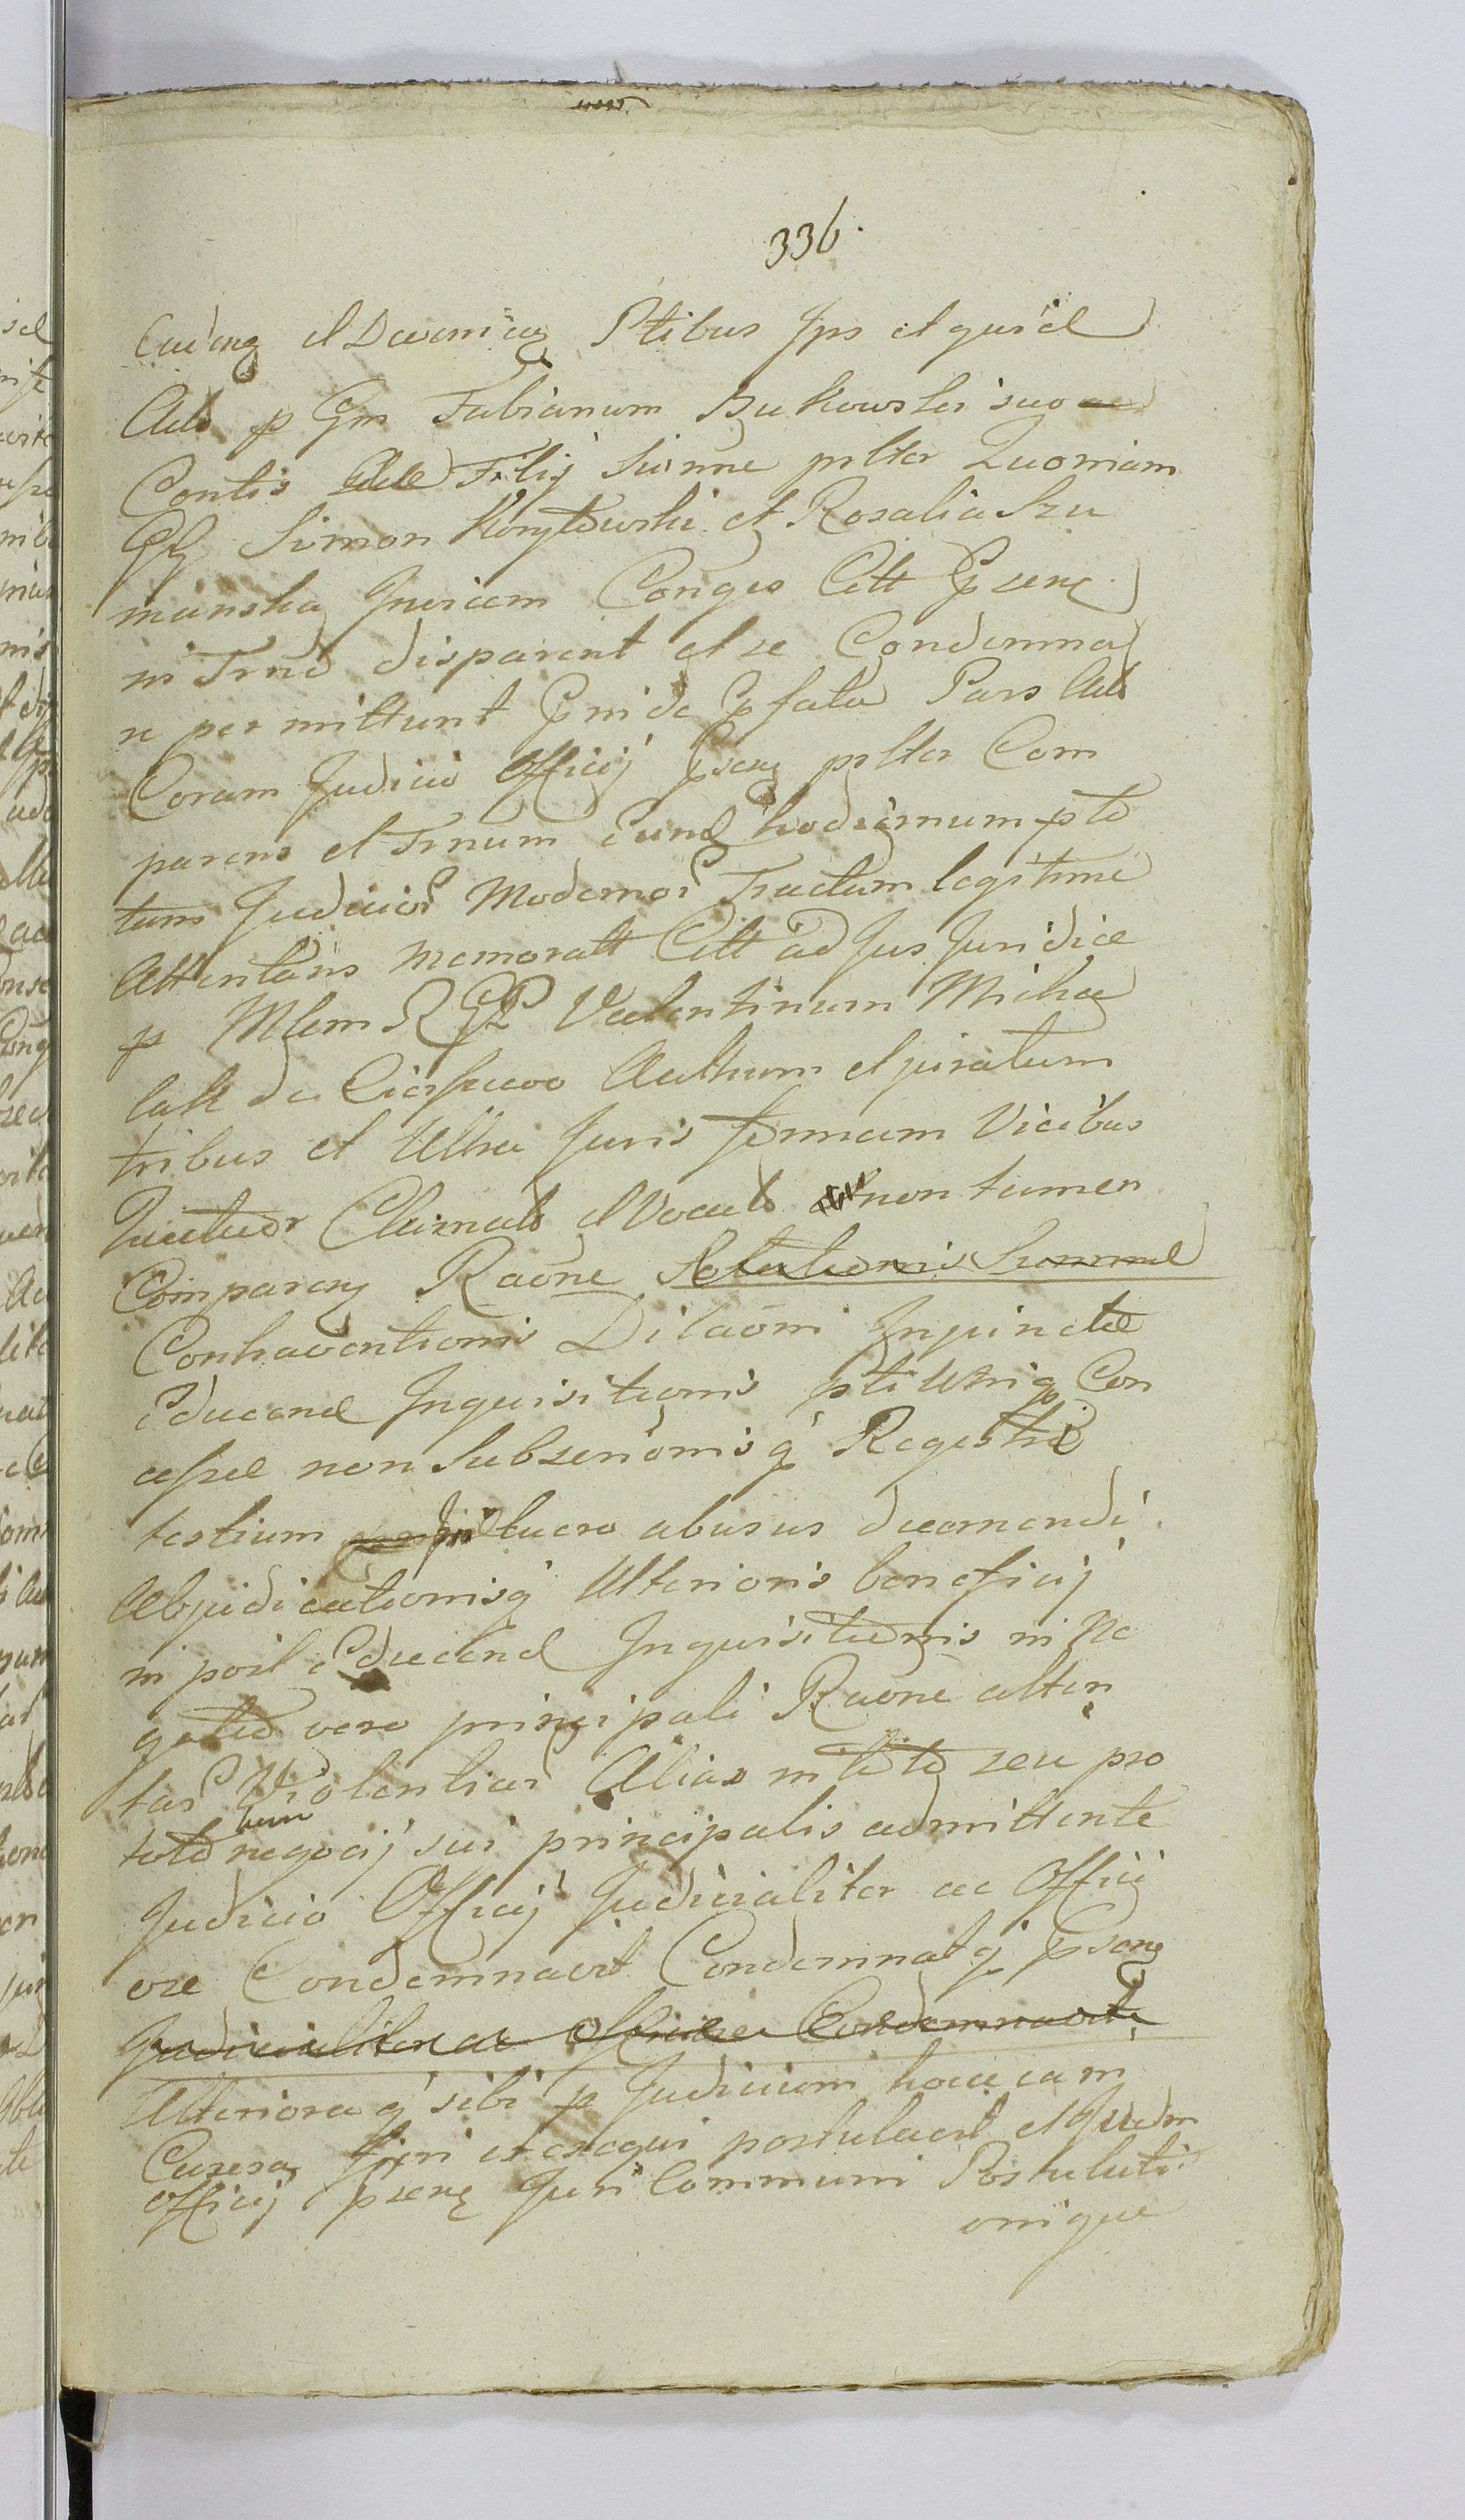 336.
et Ptibus Jps et
Act p Gm Fabianum Bukowski suo
Contis Filij Suinne pslter Quoniam
GG Simon Korytowski et Rosalia Szu
manska Invicem Conges Citt Psenę
in Trno disparent et se Condemna
permittunt Proinde Pfata Pars Act
Coram Judicio Officij Psenę pslter Com
parens et Trnum Eund hodiernum p to
tum Judicior Modernor Tractum legitime
Attentans memoratt Citt ad Jus Juridice
p Mlem Valentinum Micha
lak de Authum et juratum
tribus et Ultra Juris formam Vicibus
Clamat et Vocat non tamen
Comparen Raone Solutionis Summae
Contraventionis Dilaoni Injunctae
Educend Inquisitionis pti Utriq Con
cessae non Subscrionisq Regestri
testium lucro abusus decernendi
Abjudicationisq Ulterioris beneficij
in post Educend Inquisitionis in Ne
gotio vero principali Raone atten
tar Violentiar Alias in toto seu pro
toto
tum
negocij sui principalis admittente
Judicio Officij Judicialiter ac Offici
ose Condemnavit Condemnatq psenę
Judicialiter ac Officiose Condemnavit
Ulterioraq sibi p Judicium hocce eam
Causa fieri et exequi postulavit et Judm
Officij psenę Juri Communi Postulati
onique